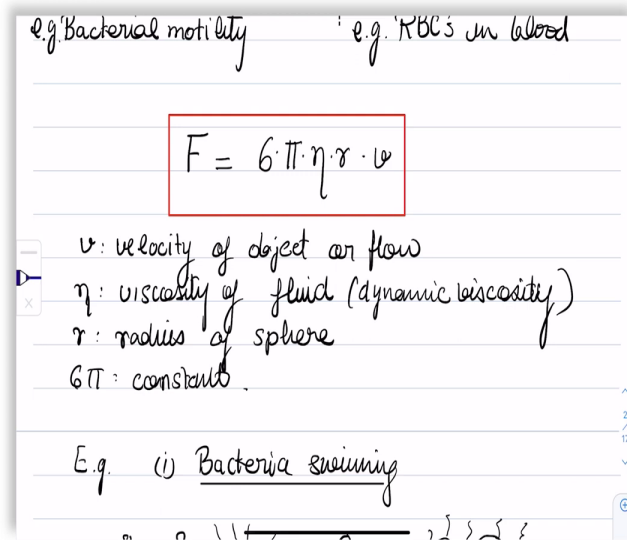 e.g. Bacterial motility e.g. RBC's in blood
F = 6·π·η·r·v
v: velocity of object or flow
η: viscosity of fluid (dynamic viscosity)
r: radius of sphere
6π: constant.
E.g. (i) Bacteria swimming